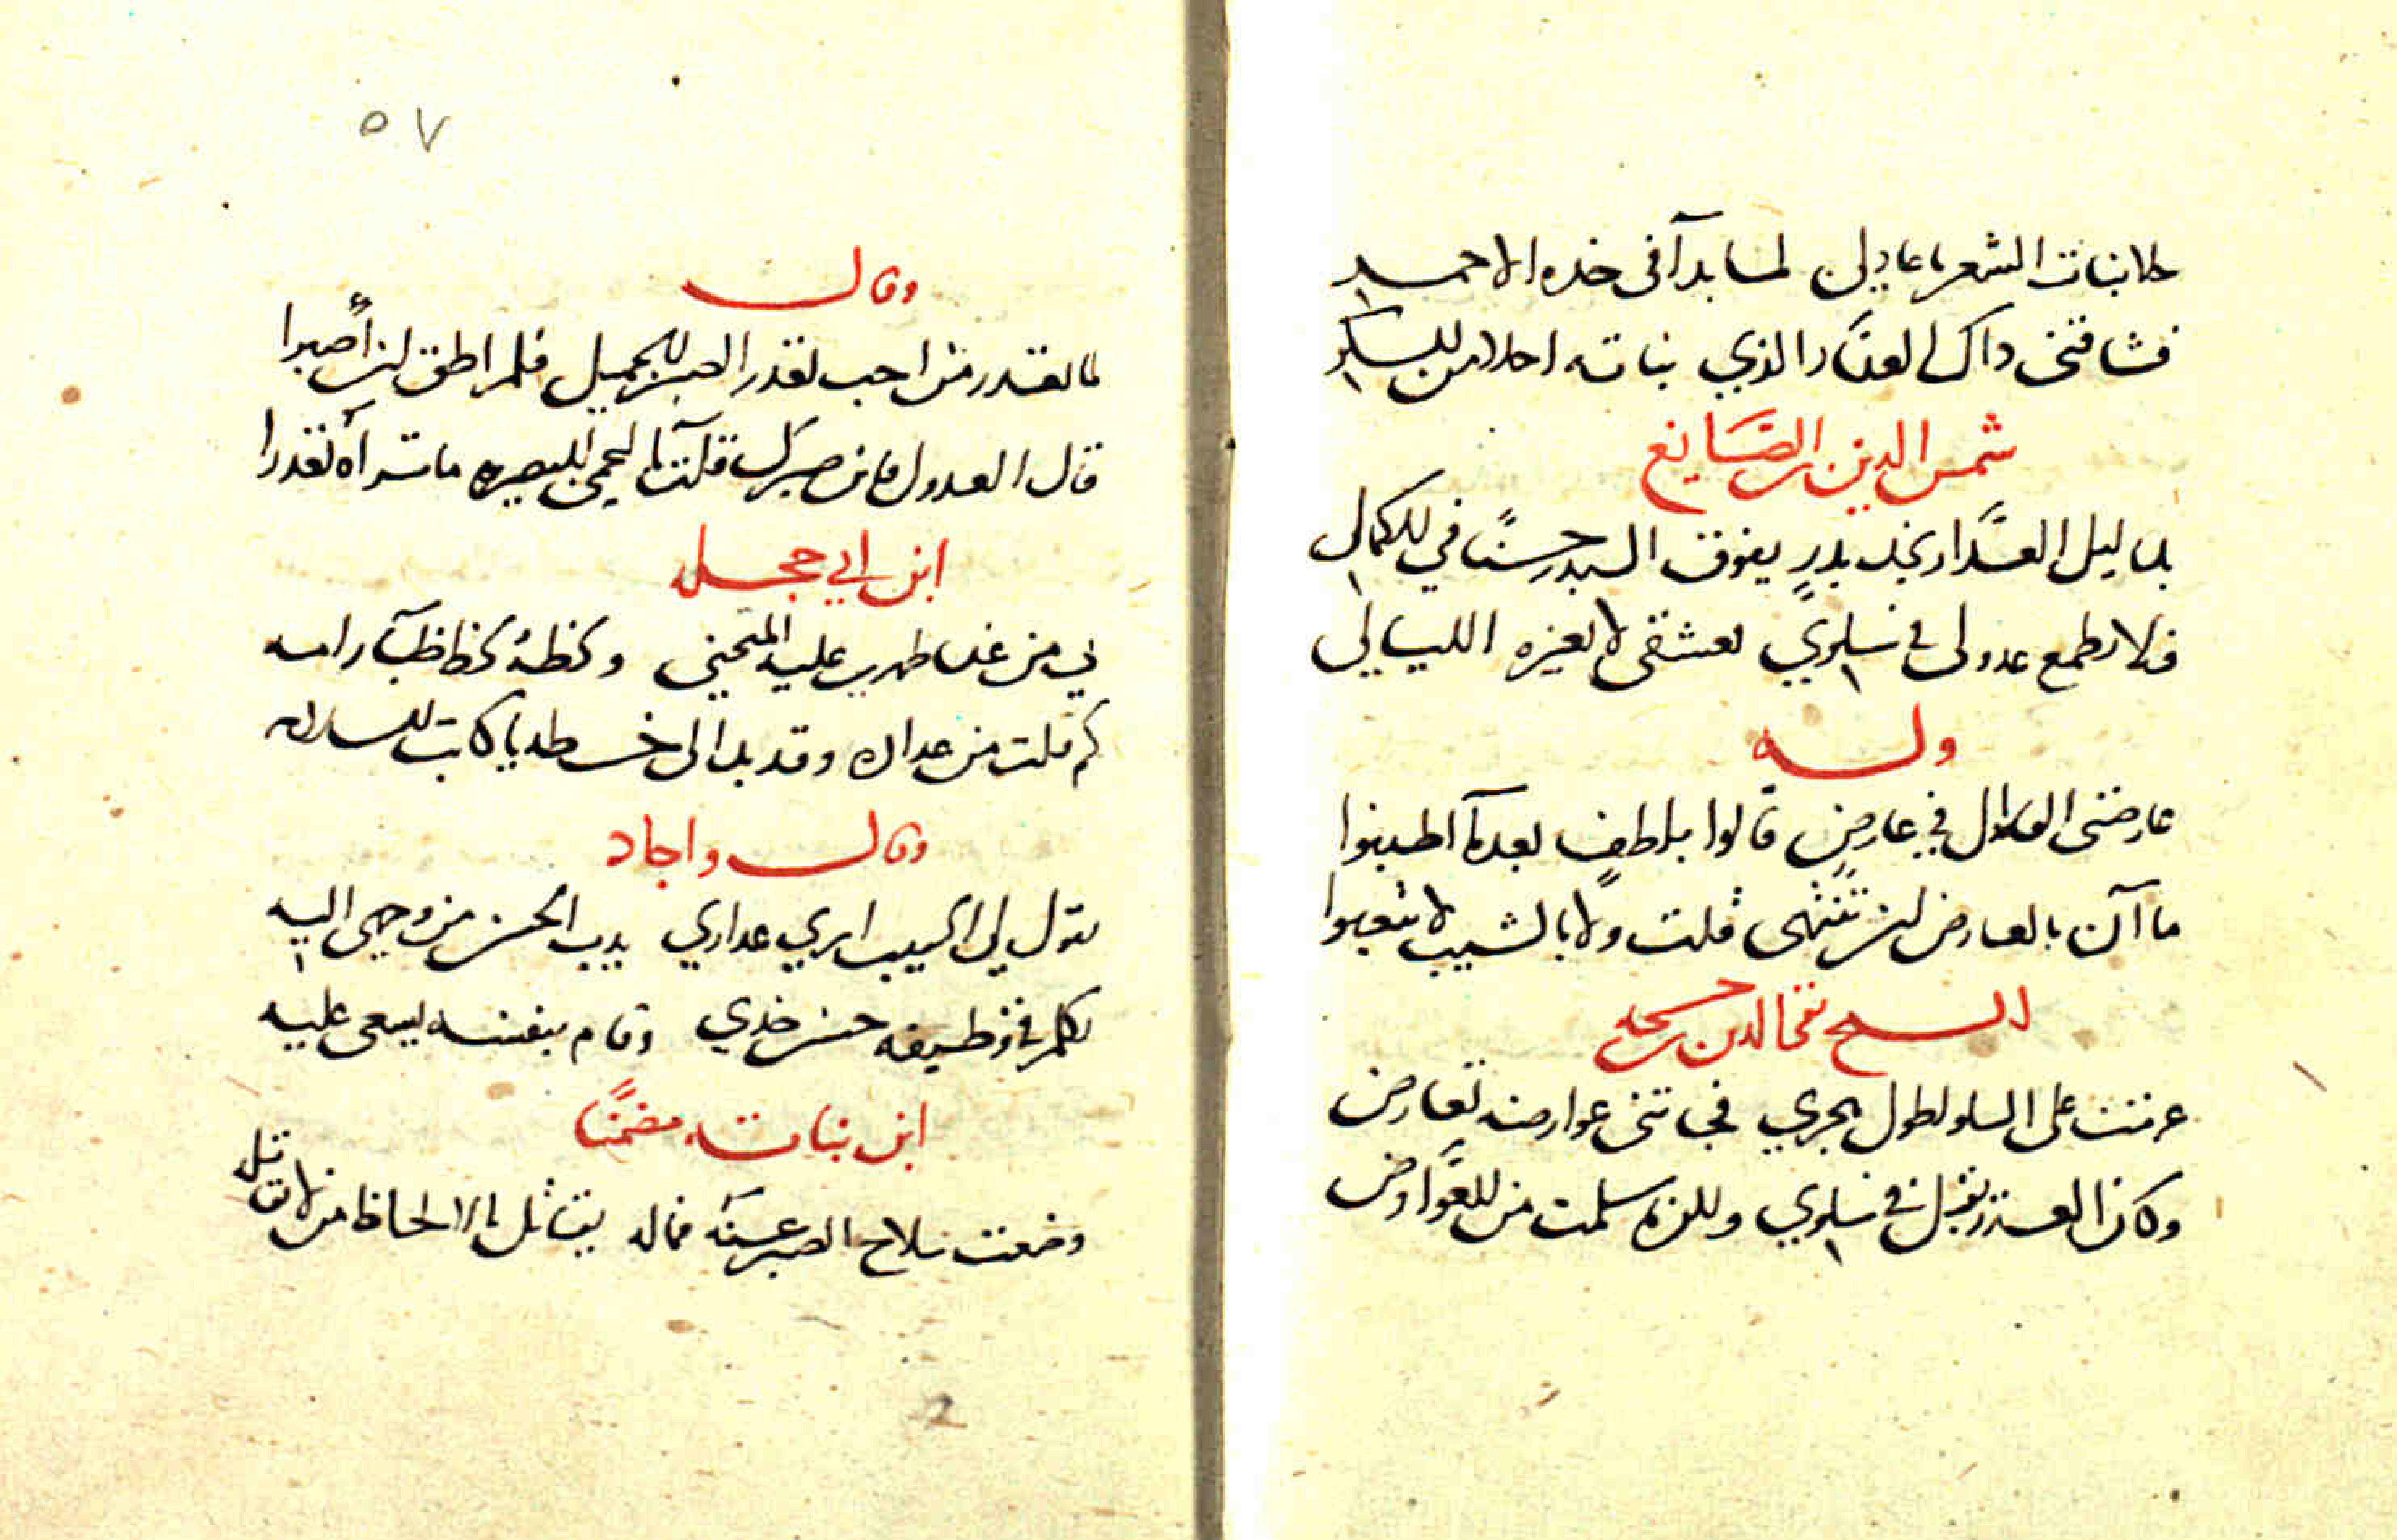 حلا نبات الشعر يا عاذلي لما بدا في خده الاحمر
فشاقني داك العذار الذي نباته احلا من السكر
شمس الدين بن الصايغ
بدا ليل العذار بخد بدرٍ يفوق البدر حسنًا في الكمال
فلا تطمع عدولي في سلوي لعشقي لا تغيره الليالي
وله
عارضني العذال في عارضٍ قالوا بلطفٍ بعدما اطنبوا
ما آن بالعارض ان تنتهي قلت ولا بالشيب لا تتعبوا
الشيخ تقي الدين بن حجه
عزمت على السلو لطول هجري في عوارضه تعارض
وكان العذر يقبل في سلوي ولكن ما سلمت من العوارض
٥٧
وقال
ما تعذر من احب تعذر الصبر الجميل فلم اطق ان أصبرا
قال العدول فاين صبرك قلت يا اعمى البصيره ما تراه تعذرا
ابن ابي حجله
بي من غدا عليه المنحنى ولحظهُ لحظ ظباء رامه
كم قلت من عداره وقد بدا لي خطه يا كاتب السلامه
وقال واجاد
يقول لي الحبيب ارى عداري يدب الحسن من وجهي اليه
تكلم في وظيفه حسن خدي وقام بنفسه يسعى عليه
ابن نباته مضمنًا
وضعت سلاح الصبر عنه فماله يقاتل بالالحاظ من لا يقاتله